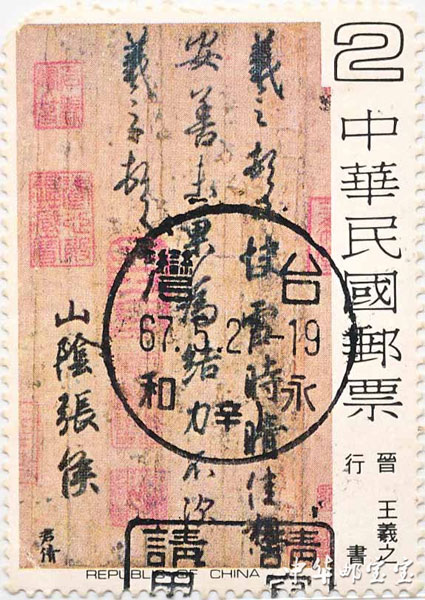 2
中華民國郵票
晉 王羲之
行書
羲之頓首快雪時晴佳想
安善未果為結力不次
羲之頓首
山陰張侯
君倩
台灣
67.5.2-19
永和
辛
請 請
REPUBLIC OF CHINA
中华邮宝宝